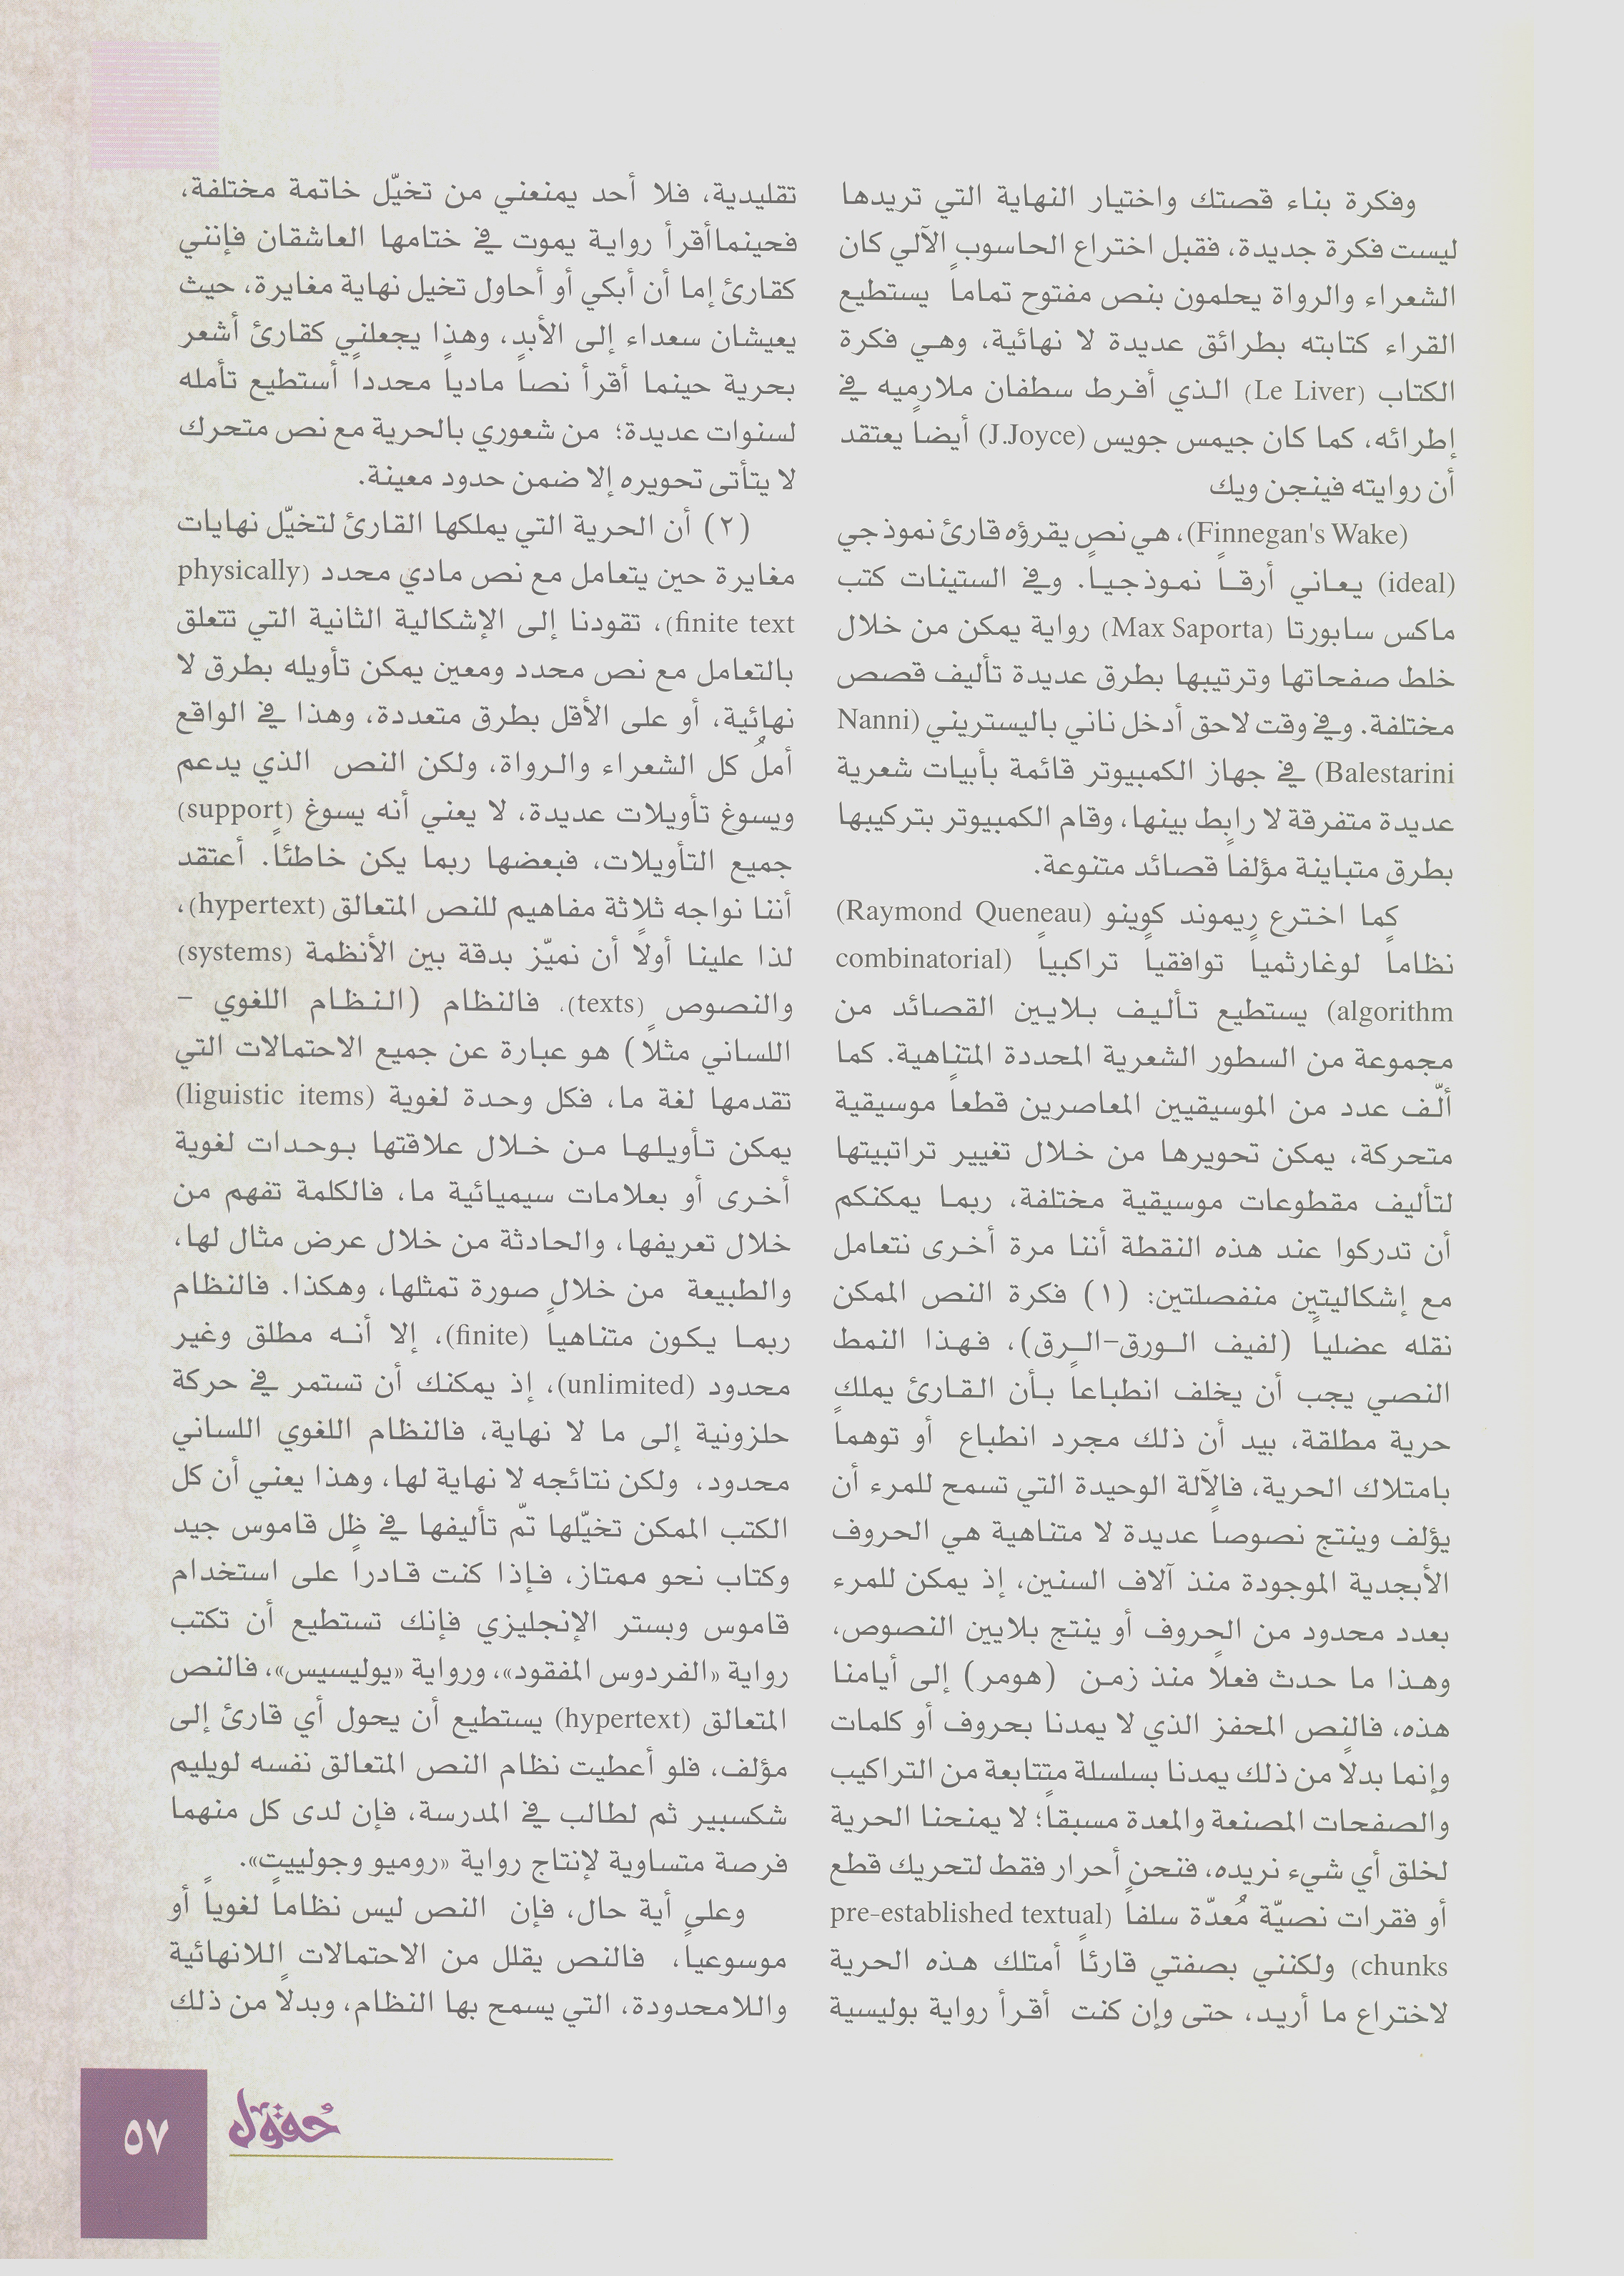 وفكرة بناء قصتك واختيار النهاية التي تريدها
ليست فكرة جديدة، فقبل اختراع الحاسوب الآلي كان
الشعراء والرواة يحلمون بنص مفتوح تماماً يستطيع
القراء كتابته بطرائق عديدة لا نهائية، وهي فكرة
الكتاب (Le Liver) الذي أفرط سطفان ملارميه في
إطرائه، كما كان جيمس جويس (J.Joyce) أيضاً يعتقد
أن روايته فينجن ويك
(Finnegan's Wake)، هي نص يقرؤه قارئ نموذجي
(ideal) يعاني أرقاً نموذجياً. وفي الستينات كتب
ماكس سابورتا (Max Saporta) رواية يمكن من خلال
خلط صفحاتها وترتيبها بطرق عديدة تأليف قصص
مختلفة. وفي وقت لاحق أدخل ناني باليستريني (Nanni
Balestarini) في جهاز الكمبيوتر قائمة بأبيات شعرية
عديدة متفرقة لا رابط بينها، وقام الكمبيوتر بتركيبها
بطرق متباينة مؤلفاً قصائد متنوعة.
كما اخترع ريموند كوينو (Raymond Queneau)
نظاماً لوغارثمياً توافقياً تراكبياً (combinatorial
algorithm) يستطيع تأليف بلايين القصائد من
مجموعة من السطور الشعرية المحددة المتناهية. كما
ألّف عدد من الموسيقيين المعاصرين قطعاً موسيقية
متحركة، يمكن تحويرها من خلال تغيير تراتبيتها
لتأليف مقطوعات موسيقية مختلفة، ربما يمكنكم
أن تدركوا عند هذه النقطة أننا مرة أخرى نتعامل
مع إشكاليتين منفصلتين: (١) فكرة النص الممكن
نقله عضلياً (لفيف الورق-الرق)، فهذا النمط
النصي يجب أن يخلف انطباعاً بأن القارئ يملك
حرية مطلقة، بيد أن ذلك مجرد انطباع أو توهماً
بامتلاك الحرية، فالآلة الوحيدة التي تسمح للمرء أن
يؤلف وينتج نصوصاً عديدة لا متناهية هي الحروف
الأبجدية الموجودة منذ آلاف السنين، إذ يمكن للمرء
بعدد محدود من الحروف أو ينتج بلايين النصوص،
وهذا ما حدث فعلاً منذ زمن (هومر) إلى أيامنا
هذه، فالنص المحفز الذي لا يمدنا بحروف أو كلمات
وإنما بدلاً من ذلك يمدنا بسلسلة متتابعة من التراكيب
والصفحات المصنعة والمعدة مسبقاً؛ لا يمنحنا الحرية
لخلق أي شيء نريده، فنحن أحرار فقط لتحريك قطع
أو فقرات نصيّة مُعدّة سلفاً (pre-established textual
chunks) ولكنني بصفتي قارئاً أمتلك هذه الحرية
لاختراع ما أريد، حتى وإن كنت أقرأ رواية بوليسية
تقليدية، فلا أحد يمنعني من تخيّل خاتمة مختلفة،
فحينماأقرأ رواية يموت في ختامها العاشقان فإنني
كقارئ إما أن أبكي أو أحاول تخيل نهاية مغايرة، حيث
يعيشان سعداء إلى الأبد، وهذا يجعلني كقارئ أشعر
بحرية حينما أقرأ نصاً مادياً محدداً أستطيع تأمله
لسنوات عديدة؛ من شعوري بالحرية مع نص متحرك
لا يتأتى تحويره إلا ضمن حدود معينة.
(٢) أن الحرية التي يملكها القارئ لتخيّل نهايات
مغايرة حين يتعامل مع نص مادي محدد (physically
finite text)، تقودنا إلى الإشكالية الثانية التي تتعلق
بالتعامل مع نص محدد ومعين يمكن تأويله بطرق لا
نهائية، أو على الأقل بطرق متعددة، وهذا في الواقع
أملُ كل الشعراء والرواة، ولكن النص الذي يدعم
ويسوغ تأويلات عديدة، لا يعني أنه يسوغ (support)
جميع التأويلات، فبعضها ربما يكن خاطئاً. أعتقد
أننا نواجه ثلاثة مفاهيم للنص المتعالق (hypertext)،
لذا علينا أولاً أن نميّز بدقة بين الأنظمة (systems)
والنصوص (texts). فالنظام (النظام اللغوي -
اللساني مثلاً) هو عبارة عن جميع الاحتمالات التي
تقدمها لغة ما، فكل وحدة لغوية (liguistic items)
يمكن تأويلها من خلال علاقتها بوحدات لغوية
أخرى أو بعلامات سيميائية ما، فالكلمة تفهم من
خلال تعريفها، والحادثة من خلال عرض مثال لها،
والطبيعة من خلال صورة تمثلها، وهكذا. فالنظام
ربما يكون متناهياً (finite)، إلا أنه مطلق وغير
محدود (unlimited)، إذ يمكنك أن تستمر في حركة
حلزونية إلى ما لا نهاية، فالنظام اللغوي اللساني
محدود، ولكن نتائجه لا نهاية لها، وهذا يعني أن كل
الكتب الممكن تخيّلها تمّ تأليفها في ظل قاموس جيد
وكتاب نحو ممتاز، فإذا كنت قادراً على استخدام
قاموس وبستر الإنجليزي فإنك تستطيع أن تكتب
رواية «الفردوس المفقود»، ورواية «يوليسيس»، فالنص
المتعالق (hypertext) يستطيع أن يحول أي قارئ إلى
مؤلف، فلو أعطيت نظام النص المتعالق نفسه لويليم
شكسبير ثم لطالب في المدرسة، فإن لدى كل منهما
فرصة متساوية لإنتاج رواية «روميو وجولييت».
وعلى أية حال، فإن النص ليس نظاماً لغوياً أو
موسوعياً، فالنص يقلل من الاحتمالات اللانهائية
واللامحدودة، التي يسمح بها النظام، وبدلاً من ذلك
حُقُول
٥٧